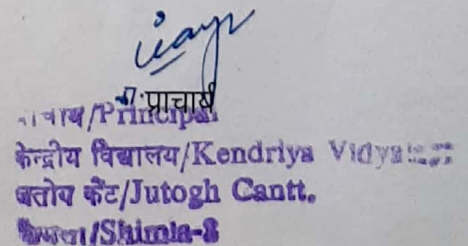 प्राचार्य
प्राचार्य/Principal
केन्द्रीय विद्यालय/Kendriya Vidya
जतोघ कैंट/Jutogh Cantt.
शिमला/Shimla-8